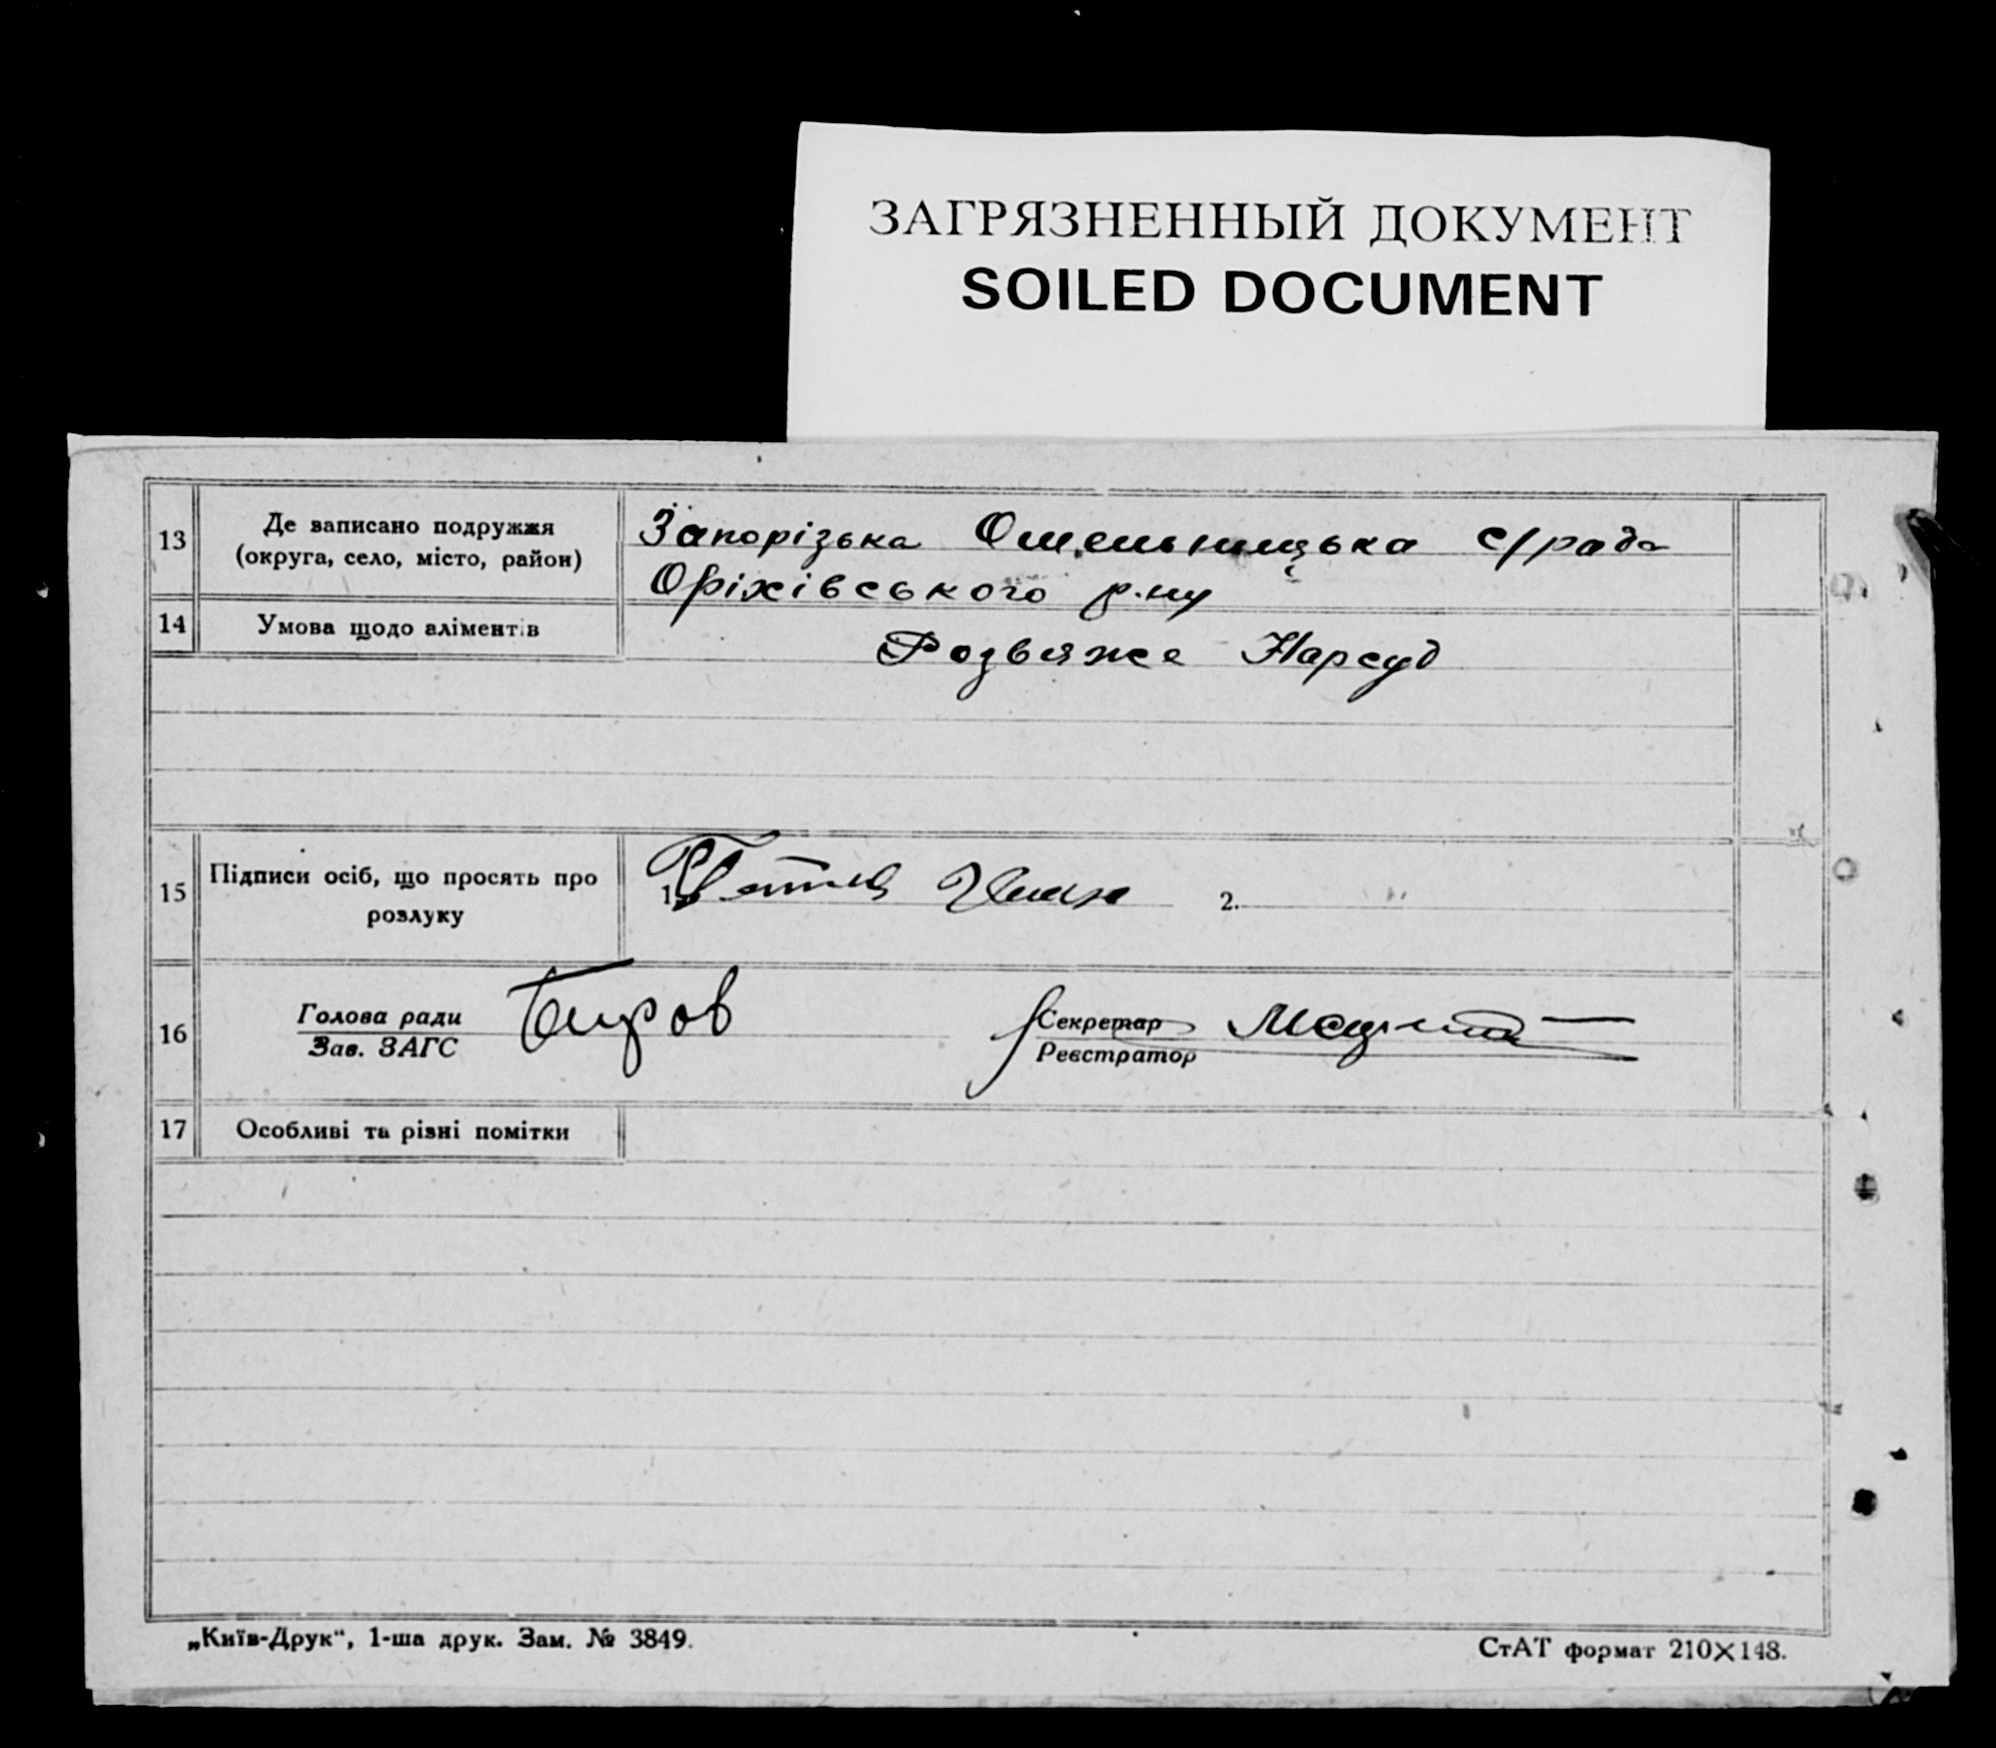 ЗАГРЯЗНЕННЫЙ ДОКУМЕНТ
SOILED DOCUMENT
13
Де записано подружжя
(округа, село, місто, район)
Запорізька Омельницька с/рада
Оріхівського р-ну
14
Умова щодо аліментів
Розвяже Нарсуд
15
Підписи осіб, що просять про
розлуку
1.
2.
16
Голова ради
Зав. ЗАГС
Секретар
Реєстратор
17
Особливі та різні помітки
„Київ-Друк“, 1-ша друк. Зам. № 3849.
СтАТ формат 210×148.